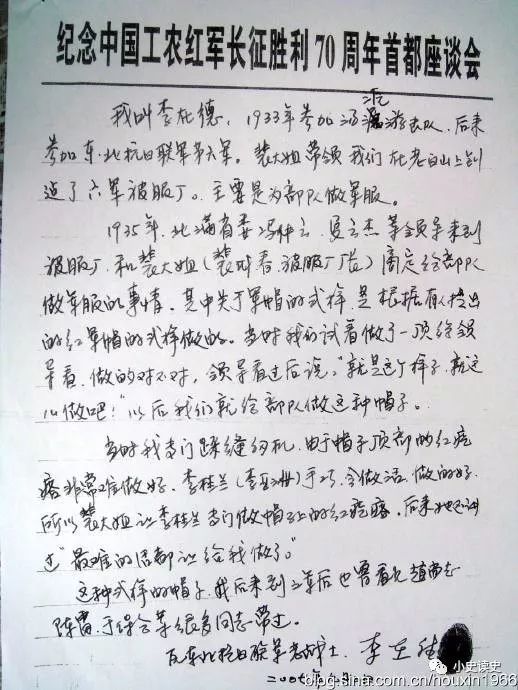 纪念中国工农红军长征胜利70周年首都座谈会
我叫李在德，1933年参加汤原游击队，后来
参加东北抗日联军第六军。裴大姐带领我们在老白山上创
造了六军被服厂。主要是为部队做军服。
1935年，北满省委冯仲云、夏云杰等领导来到
被服厂，和裴大姐（裴成春，被服厂厂长）商定给部队
做军服的事情，其中关于军帽的式样是根据有人提出
的红军帽的式样做的。当时我们试着做了一顶给领
导看，做的对不对，领导看过后说，"就是这个样子，就这
么做吧！"以后我们就给部队做这种帽子。
当时我专门踩缝纫机，由于帽子顶部的红疙
瘩非常难做好，李桂兰手巧，会做活，做的好，
所以裴大姐让李桂兰专门做帽子上的红疙瘩，后来她
过"最难的活都让给我做了。"
这种式样的帽子，我后来到三军后也曾看见赵尚志
陈雷、于保合等很多同志带过。
原东北抗日联军老战士 李在德
小史读史
blog.sina.com.cn/houxin1966